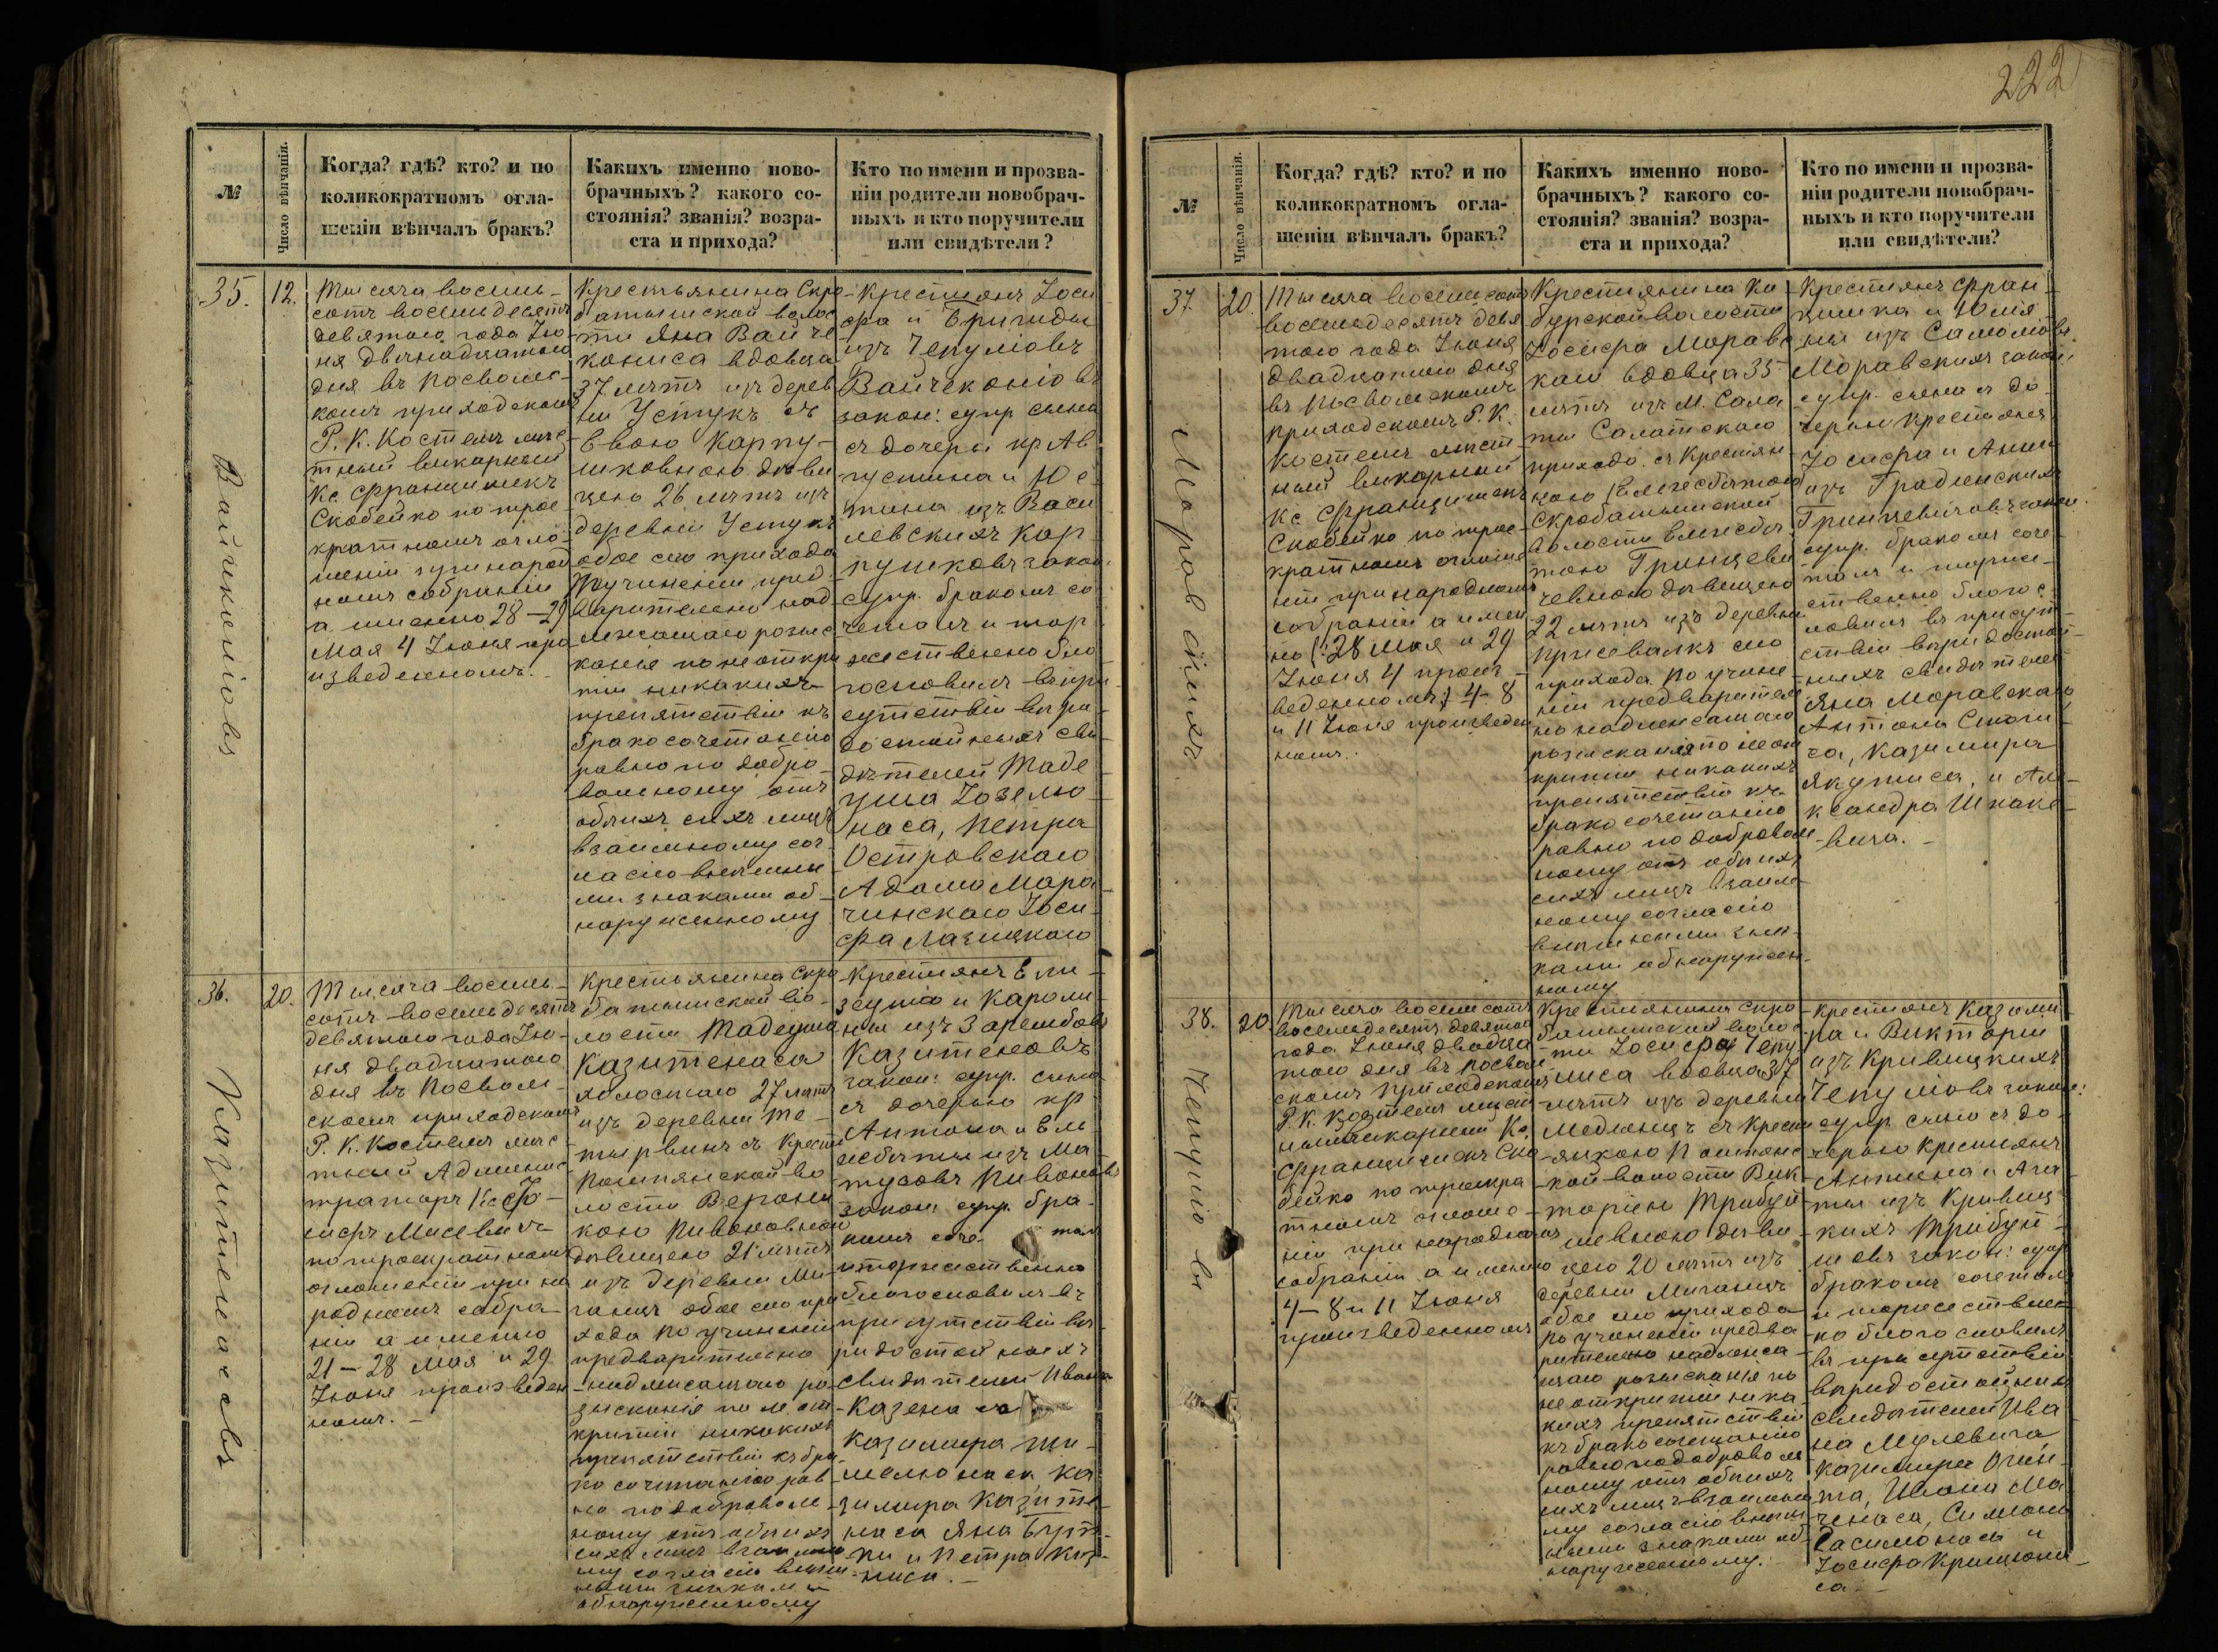 222
№
Число вѣнчанія.
Когда? гдѣ? кто? и по
коликократномъ огла-
шеніи вѣнчалъ бракъ?
Какихъ именно ново-
брачныхъ? какого со-
стоянія? званія? возра-
ста и прихода?
Кто по имени и прозва-
ніи родители новобрач-
ныхъ и кто поручители
или свидѣтели?
35.
12.
Тысяча восемь-
сотъ восемьдесятъ
девятого года Iю-
ня двѣнадцатого
дня въ Посвольс-
комъ приходскомъ
Р. К. Костелѣ мѣс
тный викарный
Кс Францишекъ
Скабейко по трое
кратномъ огло-
шеніи при народ
номъ собраніи
а именно 28-29
Мая 4 Iюня про
изведенномъ.
Крестьянина Скро
батышской волос
ти Яна Вайче
кониса вдовца
37 лѣтъ изъ дерев
ни Устукъ съ
Евою Карпу-
шковною дѣви
цею 26 лѣтъ изъ
деревни Устукъ
обое сего прихода
По учиненіи пред-
варительно над
лежащаго розыс
канія по неоткры
тіи никакихъ
препятствій къ
бракосочетанію
равно по добро-
вольному отъ
обѣихъ сихъ лицъ
взаимному сог-
ласію внѣшны
ми знаками об-
наруженному
Крестьянъ Iоси
фа и Бригиды
изъ Чепуліовъ
Вайчеконіовъ
закон: супр сына
съ дочерью кр Ав
густина и Юс
тина изъ Васи
левскихъ Кар
пушковъ закон:
супр. бракомъ со
четалъ и тор
жественно бла
гословилъ въ при
сутствіи вѣри
достойныхъ сви
дѣтелей Таде
уша Iозелю
наса, Петра
Островскаго
Адама Мара
чинскаго Iоси
фа Лазицкаго
Вайчеконіовъ
36.
20.
Тысяча восемь-
сотъ восемьдесятъ
девятого года Iю-
ня двадцатого
дня въ Посволь-
скомъ приходскомъ
Р. К. Костелѣ мѣс
тный Админис
траторъ Кс Iо-
сифъ Мисевичъ
по троекратномъ
оглошеніи при на
родномъ собра-
ніи а именно
21-28 Мая и 29
Iюня произведен
номъ.-
Крестьянина Скро
батышской во-
лости Тадеуша
Казитенаса
холостаго 27 лѣтъ
изъ деревни Те-
тырвинъ съ Крест
Помпянской во
лости Верони
кою Пивоковною
дѣвицею 21 лѣтъ
изъ деревни Ми-
ганцъ обое сего при
хода по учиненіи
предварительно
надлежащаго ро
зысканія по неот
крытіи никакихъ
препятствій къ бра
ко сочетанію рав
но по доброволь
ному отъ обѣихъ
сихъ лицъ взаимно
му согласію внѣш
ными знаками
обнаруженному
Крестьянъ Ели
зеуша и Кароли
ны изъ Зарембовъ
Казитеновъ
закон: супр. сына
съ дочерью кр
Антона и Ель
жбѣты изъ Ма
тузовъ Пивоновъ
закон: супр. бра
комъ соче тал
и торжественно
благословилъ въ
присутствіи вѣ
ридостойныхъ
свидѣтелей Ивана
Казена
Казимира Ши-
мелюнаса Ка
зимира Казите
наса Яна Бурт-
ки и Петра Каз-
ниса.-
Казитенасовъ
№
Число вѣнчанія.
Когда? гдѣ? кто? и по
коликократномъ огла-
шеніи вѣнчалъ бракъ?
Какихъ именно ново-
брачныхъ? какого со-
стоянія? званія? возра-
ста и прихода?
Кто по имени и прозва-
ніи родители новобрач-
ныхъ и кто поручители
или свидѣтели?
37.
20.
Тысяча восемьсотъ
восемьдесятъ девя
того года Iюня
двадцатого дня
въ Посвольскомъ
приходскомъ Р. К.
Костелѣ мѣст-
ный викарный
Кс Францишекъ
Скабейко по трое-
кратномъ оглоше
ніи при народномъ
собраніи а имен
но 28 Мая и 29
Iюня 4 произ-
веденномъ 4-8
и 11 Iюня произведен
номъ.
Крестьянина Ка
бурской волости
Iосифа Моравс
каго вдовца 35
лѣтъ изъ М. Сала
ты Салатскаго
прихода съ Крестьян
кою Ельжбѣтою
Скробатышской
волости Ельжбѣ
тою Гринцеви
чевною дѣвицею
22 лѣтъ изъ деревни
Присевалкъ сего
прихода По учине
ніи предваритель
но надлежащаго
розысканія по неот
крытіи никакихъ
препятствій къ
брако сочетанію
равно по доброволь
ному отъ обѣихъ
сихъ лицъ взаим
ному согласію
внѣшными зна-
ками обнаружен-
ному
Крестьянъ Фран-
цишка и Юлія
ны изъ Самоліовъ
Моравскихъ закон:
супр. сына съ до
черью Крестьянъ
Iосифа и Анны
изъ Градиенскихъ
Гринцевичовъ закон
супр. бракомъ соче
талъ и торже-
ственно благос
ловилъ въ присут
ствіи вѣридостой-
ныхъ свидѣтелей
Яна Моравскаго
Антона Стаги
са, Казимира
Якутиса, и Але-
ксандра Шпаке
вича.-
Моравскихъ
38.
20.
Тысяча восемьсотъ
восемьдесятъ девятого
года Iюня двадца
того дня въ Посволь
скомъ приходскомъ
Р. К. Костелѣ мѣст
ный викарный Кс.
Францишекъ Ска
бейко по троекра
тномъ оглоше-
ніи при народномъ
собраніи а именно
4-8 и 11 Iюня
произведенномъ
Крестьянина Скро
батышской волос
ти Iосифа Чепу
лиса вдовца 37
лѣтъ изъ деревни
Медлонцъ съ Кресть
янкою Помпянс
кой волости Вик
торіею Трибуй
шевною дѣви
цею 20 лѣтъ изъ
деревни Миганцъ
обое сего прихода
по учиненіи предва
рительно надлежа
щаго розысканія по
не открытіи ника
кихъ препятствій
къ бракосочетанію
равно по доброволь
ному отъ обѣихъ
сихъ лицъ взаимно
му согласію внѣш
ными знаками об-
наруженному.
Крестьянъ Казими
ра и Викторіи
изъ Кривицкихъ
Чепуліовъ закон:
супр. сына съ до
черью Крестьянъ
Антона и Ага
ты изъ Кривиц
кихъ Трибуй-
шевъ закон: супр
бракомъ сочеталъ
и торжествен
но благословилъ
въ присутствіи
вѣридостойныхъ
свидѣтелей Ива
на Мулевича
Казимира
Ивана Ма
ченаса, Симона
и
Iосифа Крищюна-
са-
Чепуліовъ